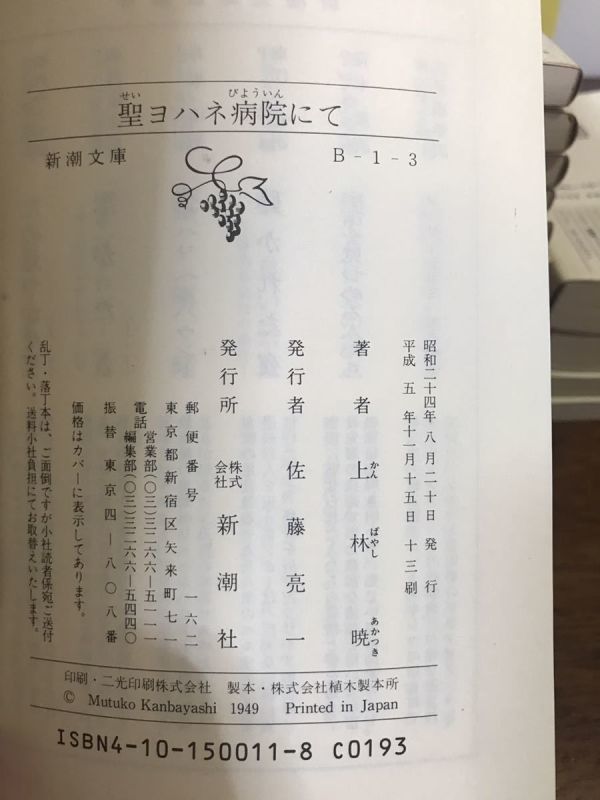 聖ヨハネ病院にて
新潮文庫 B-1-3
昭和二十四年八月二十日発行
平成五年十一月十五日十三刷
著者 上林暁
発行者 佐藤亮一
発行所 株式会社新潮社
郵便番号 一六二
東京都新宿区矢来町七一
電話 営業部(〇三)三二六六—五一一一
編集部(〇三)三二六六—五四四〇
振替 東京四—八〇八番
価格はカバーに表示してあります。
乱丁・落丁本は、ご面倒ですが小社読者係宛ご送付
ください。送料小社負担にてお取替えいたします。
印刷・二光印刷株式会社 製本・株式会社植木製本所
© Mutuko Kanbayashi 1949 Printed in Japan
ISBN4-10-150011-8 C0193